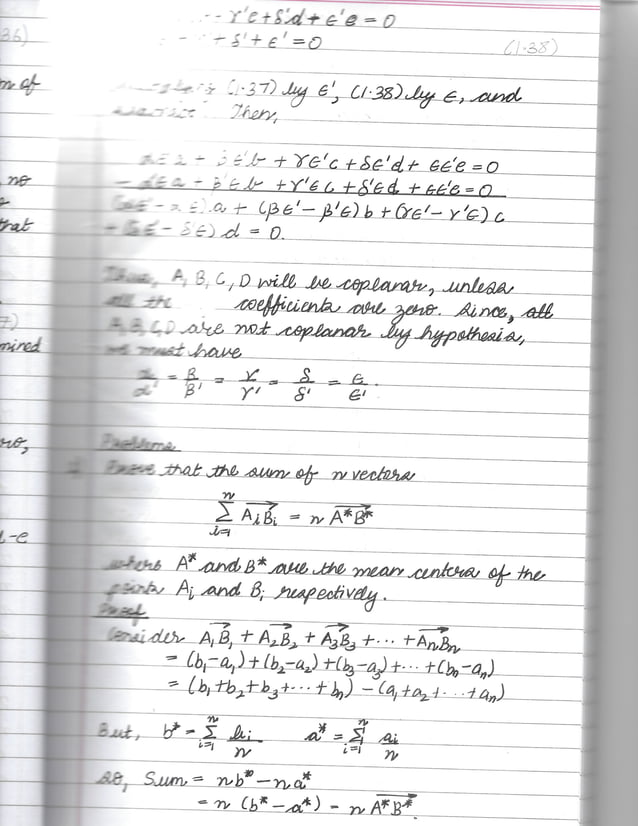 γ'c + δ'd + ε'e = 0
36)
+ δ' + ε' = 0
(1.38)
m of
(1.37) by ε', (1.38) by ε, and
Then,
+ β ε'b + γε'c + δε'd + εε'e = 0
no
ε a + β'ε b + γ'ε c + δ'εd + εε'e = 0
a + (βε' – β'ε) b + (γε' – γ'ε) c
that
ε) d = 0.
A, B, C, D will be coplanar, unless
all the coefficients are zero. Since, all
7)
A, B, C, D are not coplanar by hypothesis,
mined
we must have
α/α' = β/β' = γ/γ' = δ/δ' = ε/ε'.
ro,
Problems
Prove that the sum of n vectors
n Σ i=1 AiBi = n A*B*
l-e
where A* and B* are the mean centers of the
points Ai and Bi respectively.
Proof
Consider A1B1 + A2B2 + A3B3 + ... + AnBn
= (b1-a1) + (b2-a2) + (b3-a3) + ... + (bn-an)
= (b1+b2+b3+...+bn) - (a1+a2+...+an)
But, b* = n Σ i=1 bi/n a* = n Σ i=1 ai/n
so, Sum = nb* - na*
= n (b* - a*) = n A*B*.